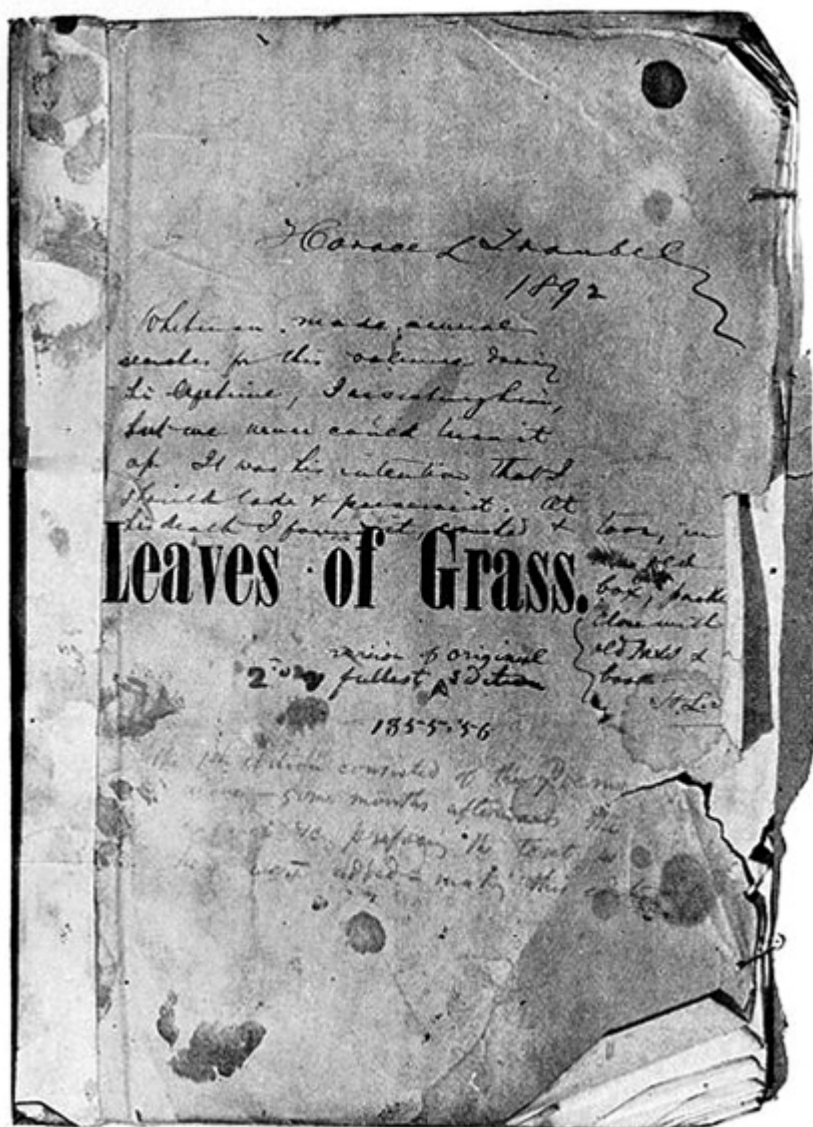 Horace L Traubel
1892
Whitman made several
searches for this volume during
his lifetime, I assisting him,
but we never could turn it
up. It was his intention that I
should take & preserve it. At
his death I found it, & torn, in
an old
box,
close with
old MSS &
books
H. L.
Leaves of Grass.
2d version of original
fullest Edition
1855-56
The 1st edition consisted of the poems
alone – some months afterwards the
prefacing the text
were added making this